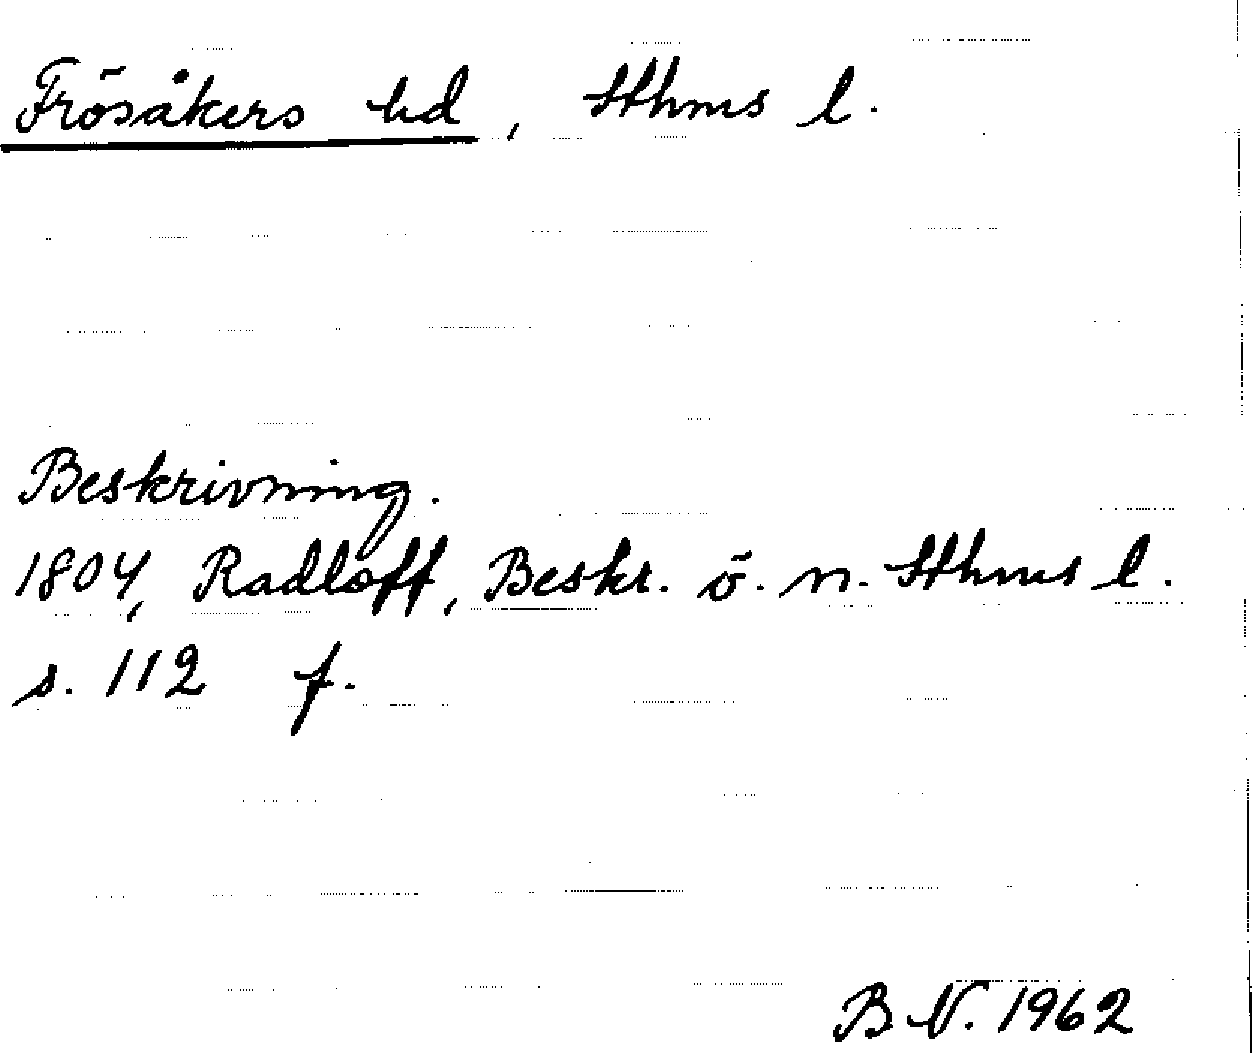 Frösåkers hd, Sthms l.
Beskrivning.
1804, Radloff, Beskr. ö. n. Sthms l.
s. 112 f.
B.N. 1962